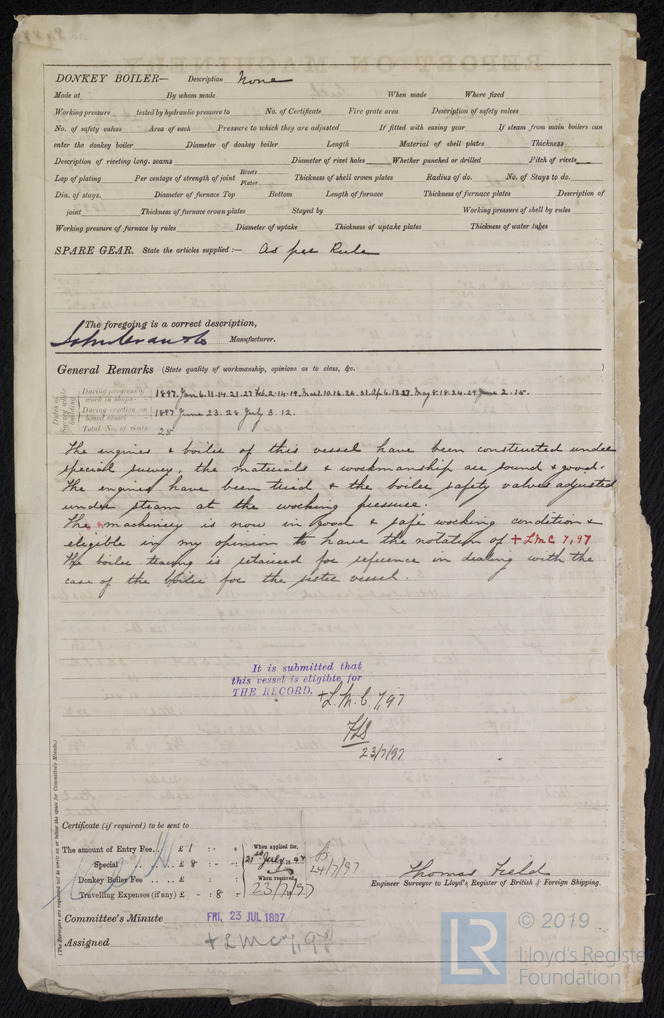 REPORT ON MACHINERY
DONKEY BOILER— Description None
Made at By whom made When made Where fixed
Working pressure tested by hydraulic pressure to No. of Certificate Fire grate area Description of safety valves
No. of safety valves Area of each Pressure to which they are adjusted If fitted with easing gear If steam from main boilers can
enter the donkey boiler Diameter of donkey boiler Length Material of shell plates Thickness
Description of riveting long. seams Diameter of rivet holes Whether punched or drilled Pitch of rivets
Lap of plating Per centage of strength of joint Rivets Plates Thickness of shell crown plates Radius of do. No. of Stays to do.
Dia. of stays. Diameter of furnace Top Bottom Length of furnace Thickness of furnace plates Description of
joint Thickness of furnace crown plates Stayed by Working pressure of shell by rules
Working pressure of furnace by rules Diameter of uptake Thickness of uptake plates Thickness of water tubes
SPARE GEAR. State the articles supplied:— As per Rule
The foregoing is a correct description,
Manufacturer.
General Remarks (State quality of workmanship, opinions as to class, &c. )
During progress of work in shops - - 1897. Jan 6. 11. 14. 21. 27 Feb 2. 14. 19. Mar 1. 10. 16. 26. 31. Ap 6. 13. 27. May 8. 18. 24. 29 June 2. 15.
During erection on board vessel - - 1897 June 23. 28 July 3. 12.
Total No. of visits 25
The engines & boiler of this vessel have been constructed under
special survey, the materials & workmanship are sound & good.
The engines have been tried & the boiler safety valves adjusted
under steam at the working pressure.
The machinery is now in good & safe working condition &
eligible in my opinion to have the notation of + LMC 7,97
The boiler tracing is retained for reference in dealing with the
case of the boiler for the sister vessel.
It is submitted that
this vessel is eligible for
THE RECORD. + L.M.C. 7,97
23/7/97
(The Surveyors are requested not to write on or below the space for Committee's Minute.)
Certificate (if required) to be sent to
The amount of Entry Fee.. £ 1 : - : - When applied for,
Special .. .. £ 8 : - : - 21st July 1897
24/7/97
Donkey Boiler Fee .. £ : : When received,
Travelling Expenses (if any) £ - : 8 : - 23/7/97
Thomas Field
Engineer Surveyor to Lloyd's Register of British & Foreign Shipping.
Committee's Minute FRI. 23 JUL 1897
Assigned + LMC 7,97
© 2019
LR Lloyd's Register
Foundation